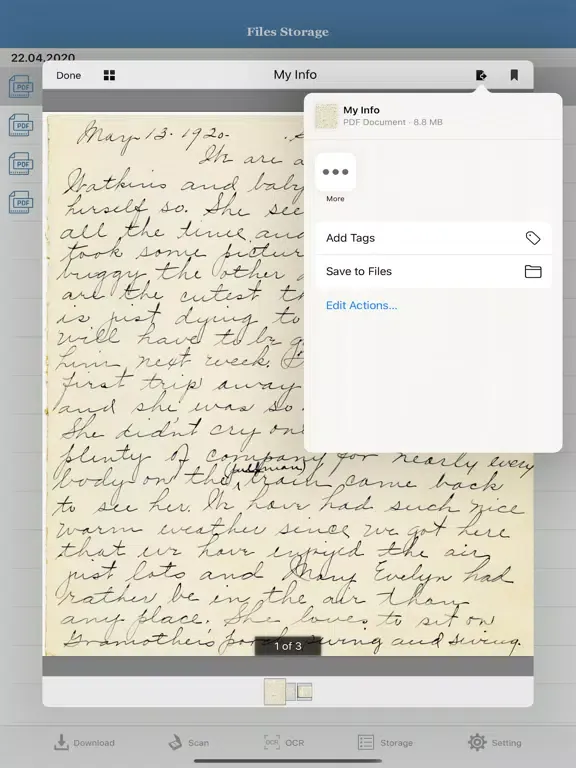 Files Storage
22.04.2020
Done
My Info
PDF
PDF
PDF
PDF
My Info
PDF Document · 8.8 MB
More
Add Tags
Save to Files
Edit Actions...
May 13. 1920.
We are a
Watkins and baby
herself so. She see
all the time and
took some pictur
buggy the other
are the cutest th
is just dying to
will have to be g
him next week.
first trip away
and she was so
She didn't cry on
plenty of company for nearly every
body on the train came back
to see her. We have had such nice
warm weather since we got here
that we have enjoyed the air
just lots and Mary Evelyn had
rather be in the air than
any place. She loves to sit on
Gramother's porch swing and swing.
1 of 3
Download
Scan
OCR
OCR
Storage
Setting